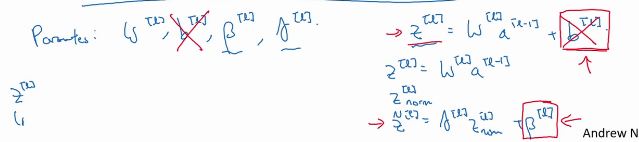 Parametes: W^[l], b^[l], β^[l], γ^[l].
→ z^[l] = W^[l] a^[l-1] + b^[l].
z^[l] = W^[l] a^[l-1]
z^[l]_norm
→ z̃^[l] = γ^[l] z^[l]_norm + β^[l] ←
z^[l]
Andrew N